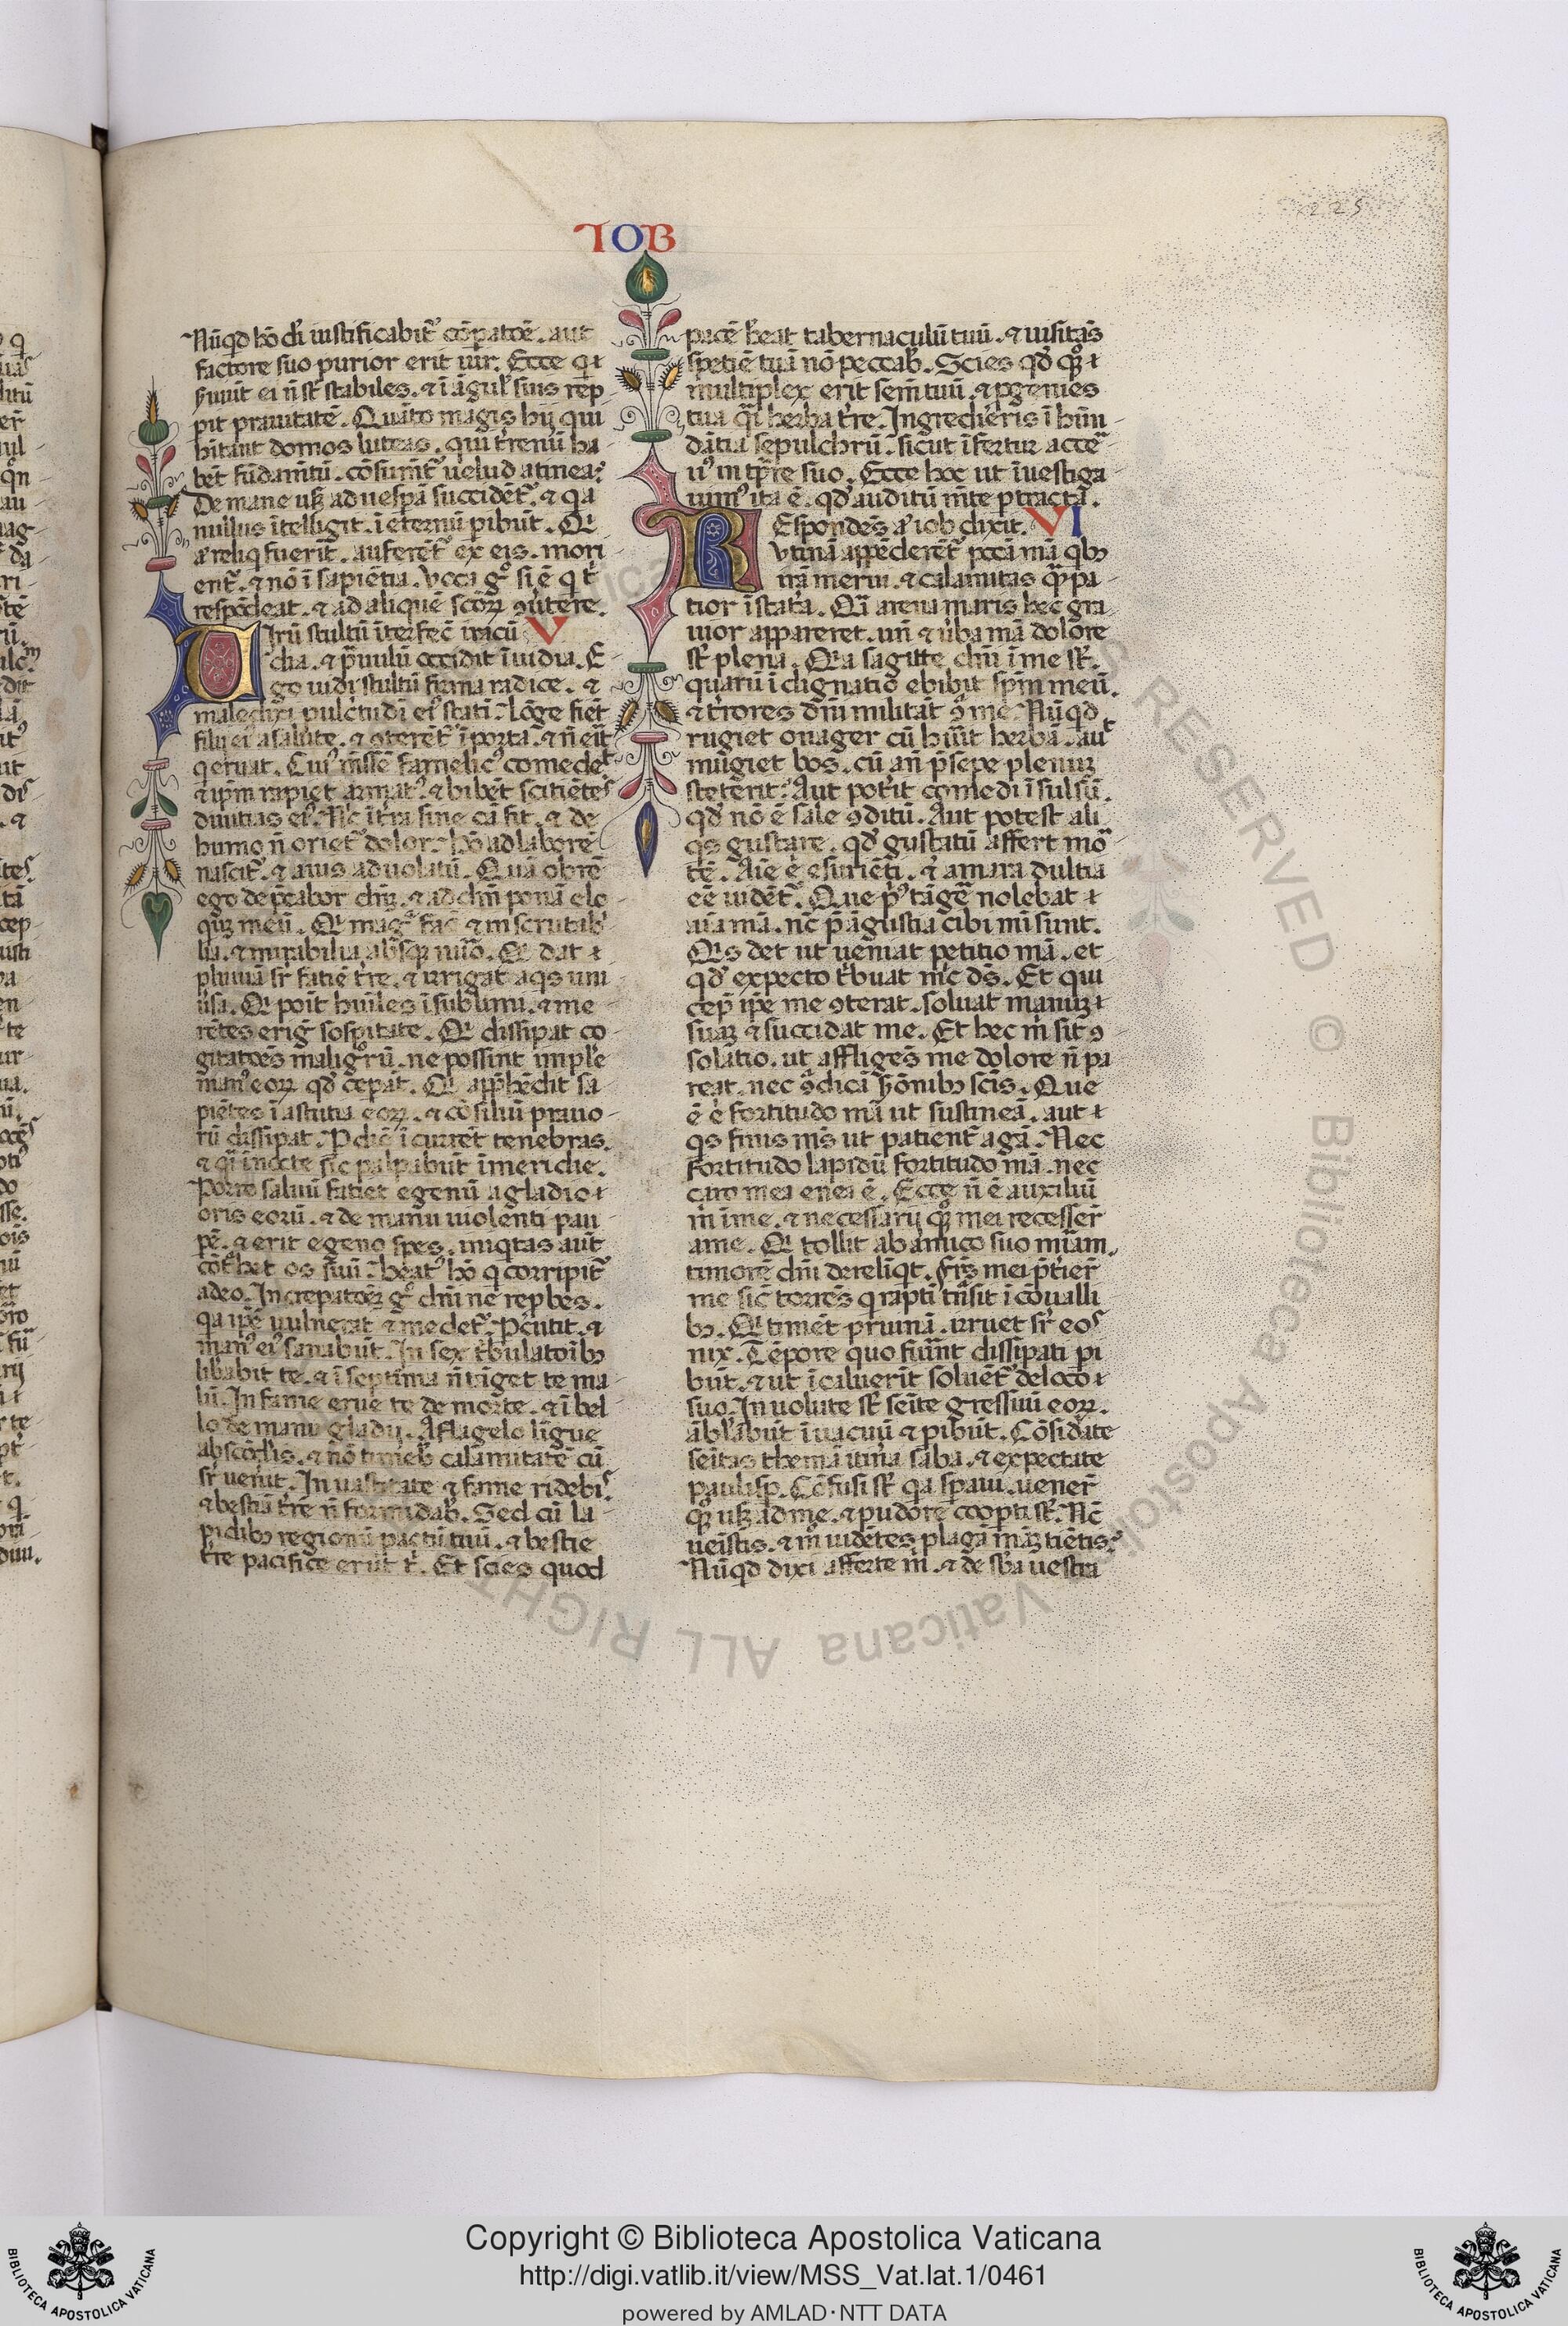 225
IOB
Nūqd hō dī iustificabit̄ cōpatōe. aut
factore suo purior erit uir. Ecce q
ẜuiūt ei n̄ st̄ stabiles. ⁊ ī āgul' suis rep
pit prauitatē. Quāto magis hij qui
hītāt domos luteas. qui t̄renū ha
bēt fūdam̄tū. cōsum̄t̄ uelud a tinea:
De mane usq; ad uesp̄ā succidēt̄. ⁊ qa
nullus ītelligit. ī eternū pibūt. Q
reliq fuerīt. auferēt̄ ex eis. mori
ent̄. ⁊ nō ī sapiētia. Voca g° si ē q t'
respōdeat. ⁊ ad aliquē sc̄oꝝ ꝯūtere.
Virū stultū īterfec̄ iracū V
dia. ⁊ p̄uulū occidit īuidia. E
go uidi stultū firma radice. ⁊
maledixi pulc̄tudī ei' stati: Lōge fiēt
filij ei' a salute. ⁊ ꝯterēt̄ ī porta. ⁊ n̄ erit
q eruat. Cui' messē famelic' comedet
⁊ ip̄m rapiet armat'. ⁊ bibēt scitiētes
diuitias ei'. Nic̄ ī t̄ra sine cā fit. ⁊ de
humo n̄ oriet̄ dolor. hō ad laborē
nascit̄. ⁊ auis ad uolatū. Quā obrē
ego dep̄cabor dn̄j. ⁊ ad dn̄j ponā elo
quiȝ meū. Q mag̃ fac̄ ⁊ inscrutabi
lia. ⁊ mirabilia absq; nūo. Q dat
pluuiā sr̄ fatiē t̄re. ⁊ irrigat aqs uni
ūsa. Q poīt huīles ī sublimi. ⁊ me
rētes erig̃ sospitate. Q dissipat co
gitatōes malig̃rū. ne possint imple
man' eoꝝ qd' cep̄at. Q app̄hēdit sa
piētes ī astutia eoꝝ. ⁊ cōsiliū prauo
rū dissipat. P diē ī currēt tenebras.
⁊ q̄i ī nocte sic palpabūt ī meridie.
Porro saluū fatiet egenū a gladio
oris eorū. ⁊ de manu uiolenti pau
pē. ⁊ erit egeno spes. iniqtas aūt
cōt̄het os suū: beat' hō q corripit̄
a deo. Increpatōeȝ g° dn̄i ne rep̄bes.
qa ip̄e uulnerat ⁊ medet̄: P̄cutit. ⁊
man' ei' sanabūt. In sex t̄bulatoībꝫ
lib̄abit te. ⁊ ī septima n̄ tāget te ma
lū. In fame eruet te de morte. ⁊ ī bel
lo de manu gladij. A flagelo līgue
abscōd̄is. ⁊ nō timeb' calāmitatē cū
sr̄ uen̄it. In uastitate ⁊ fame ridebis
⁊ bestiā t̄re n̄ formidab̄. Sed cū la
pidibꝫ regionū pactū tuū. ⁊ bestie
t̄re pacifice erūt t'. Et scies quod
pacē h̄eat tabernaculū tuū. ⁊ uisitās
spetiē tuā nō peccab̄. Scies qd' qꝫ
multiplex erit sem̄ tuū. ⁊ ꝓgenies
tua q̄i herba t̄re. Ingredieris ī hūn
dātia sepulchrū. sicut īfertur acce
u' in tp̄re suo. Ecce hoc ut īuestiga
uim' ita ē. qd' auditū m̄te ptracta.
REspondēs a' iob dixit. VI
Vtinā appēderēt̄ pccā mā qbꝫ
irā merui. ⁊ calamitas quā pa
tior ī stat̄a. Q̄i arena maris hec gra
uior appareret. un̄ ⁊ ūba mā dolore
st̄ plena. Qa sagitte dn̄i ī me st̄.
quarū īdignatio ebibit sp̄m meū.
⁊ t̄rores dn̄i militāt ꝯ me. Nūqd
rugiet onager cū hūit herbā. aut
mūgiet bos. cū an̄ p̄sepe plenuȝ
steterit: Aut pot'it comedi īsulsū.
qd' nō ē sale ꝯditū. Aut potest ali
qs gustare. qd' gustatū affert mo
tē. Aīe e' esuriēti. ē amara dultia
eē uidēt̄. Que p̄' tāge nolebat
aīa mā. nc̄ p̄ āgustia cibi mī sunt.
Q̄s det ut ueniat petitio mā. et
qd' expecto t̄buat mc̄ ds̄. Et qui
cep̄ ip̄e me ꝯterat. soluat manuȝ
suaȝ ⁊ succidat me. Et hec m̄ sit ꝯ
solatio. ut affligēs me dolore n̄ pa
reat. nec ꝯdicā ẜmonibꝫ scīs. Que
ē e' fortitudo mā ut sustineā. aut
qs finis m̄s ut patient̄ agā. Nec
fortitudo lapidū fortitudo mā. nec
caro mea enea ē. Ecce n̄ ē auxiliū
m̄ ī me. ⁊ necessarij qꝫ mei recesser̄
a me. Q tollit ab amico suo mīam.
timorē dn̄i dereliqt. Frs̄ mei p̄tier̄
me sic̄ torrēs q rapti trāsit ī cōualli
bꝫ. Q timēt pruinā. irruet sr̄ eos
nix. Tēpore quo fuīnt dissipati pi
būt. ⁊ ut īcaluerīt soluēt̄ de loco
suo. Inuolute st̄ semite gressuū eoꝝ.
āblabūt ī uacuū ⁊ pibūt. Cōsid̄ate
semitas themā itin̄a saba. ⁊ expectate
paulisp̄. Cōfusi st̄ qa sp̄aui. uener̄
qꝫ usq; ad me. ⁊ pudore cooꝑti st̄. Nc̄
ueistis. ⁊ mō uidētes plagā māȝ tiētis:
Nūqd dixi afferte m̄. ⁊ de sb̄a uestra
BIBLIOTECA APOSTOLICA VATICANA
Copyright © Biblioteca Apostolica Vaticana
http://digi.vatlib.it/view/MSS_Vat.lat.1/0461
powered by AMLAD·NTT DATA
BIBLIOTECA APOSTOLICA VATICANA